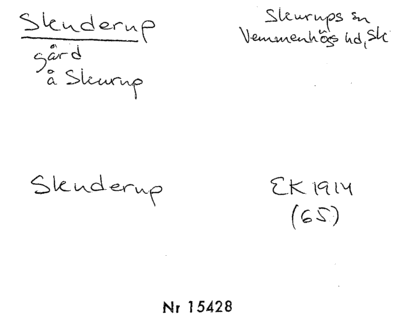 Skuderup
gård
å Skurup
Skurups sn
Vemmenhögs hd, Sk
Skuderup
EK 1914
(65)
Nr 15428